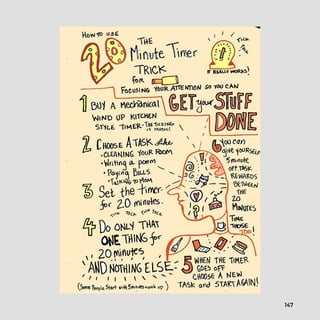 HOW TO USE
THE
20 Minute Timer
TRICK
for
FOCUSING YOUR ATTENTION SO YOU CAN
GET your STUFF
DONE
TICK
TICK
IT REALLY WORKS!
1 BUY A MECHANICAL
WIND UP KITCHEN
STYLE TIMER - THE TICKING
IS MAGIC!
2 CHOOSE A TASK like
- CLEANING YOUR ROOM
- Writing a poem
- Paying BILLS
- TALKING TO MOM
3 Set the timer
for 20 minutes.
TICK TICK TICK TICK
4 DO ONLY THAT
ONE THING for
20 minutes
AND NOTHING ELSE -
(Some People Start with 5 minutes & work up)
5 WHEN THE TIMER
GOES OFF
CHOOSE A NEW
TASK and START AGAIN!
6 YOU CAN
give YOURSELF
5 minute
OFF TASK
REWARDS
BETWEEN
THE
20
MINUTES
TIME
THOSE
TOO!
147